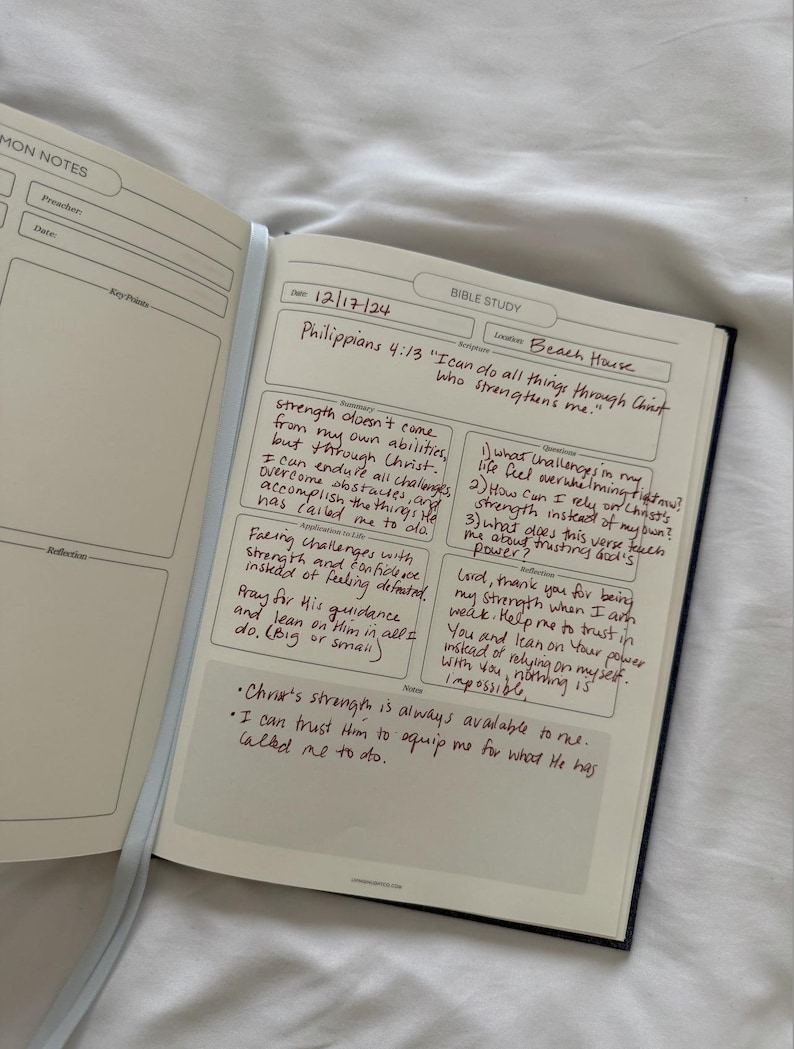 MON NOTES
Preacher:
Date:
Key Points
Reflection
BIBLE STUDY
Date: 12/17/24
Location: Beach House
Scripture
Philippians 4:13 "I can do all things through Christ
who strengthens me."
Summary
Strength doesn't come
from my own abilities,
but through Christ.
I can endure all challenges,
overcome obstacles, and
accomplish the things He
has called me to do.
Questions
1) What challenges in my
life feel overwhelming right now?
2) How can I rely on Christ's
strength instead of my own?
3) What does this verse teach
me about trusting God's
power?
Application to Life
Facing challenges with
strength and confidence
instead of feeling defeated.
Pray for His guidance
and lean on Him in all I
do. (Big or small)
Reflection
Lord, thank you for being
my strength when I am
weak. Help me to trust in
You and lean on Your power
instead of relying on myself.
With You, nothing is
impossible.
Notes
• Christ's strength is always available to me.
• I can trust Him to equip me for what He has
called me to do.